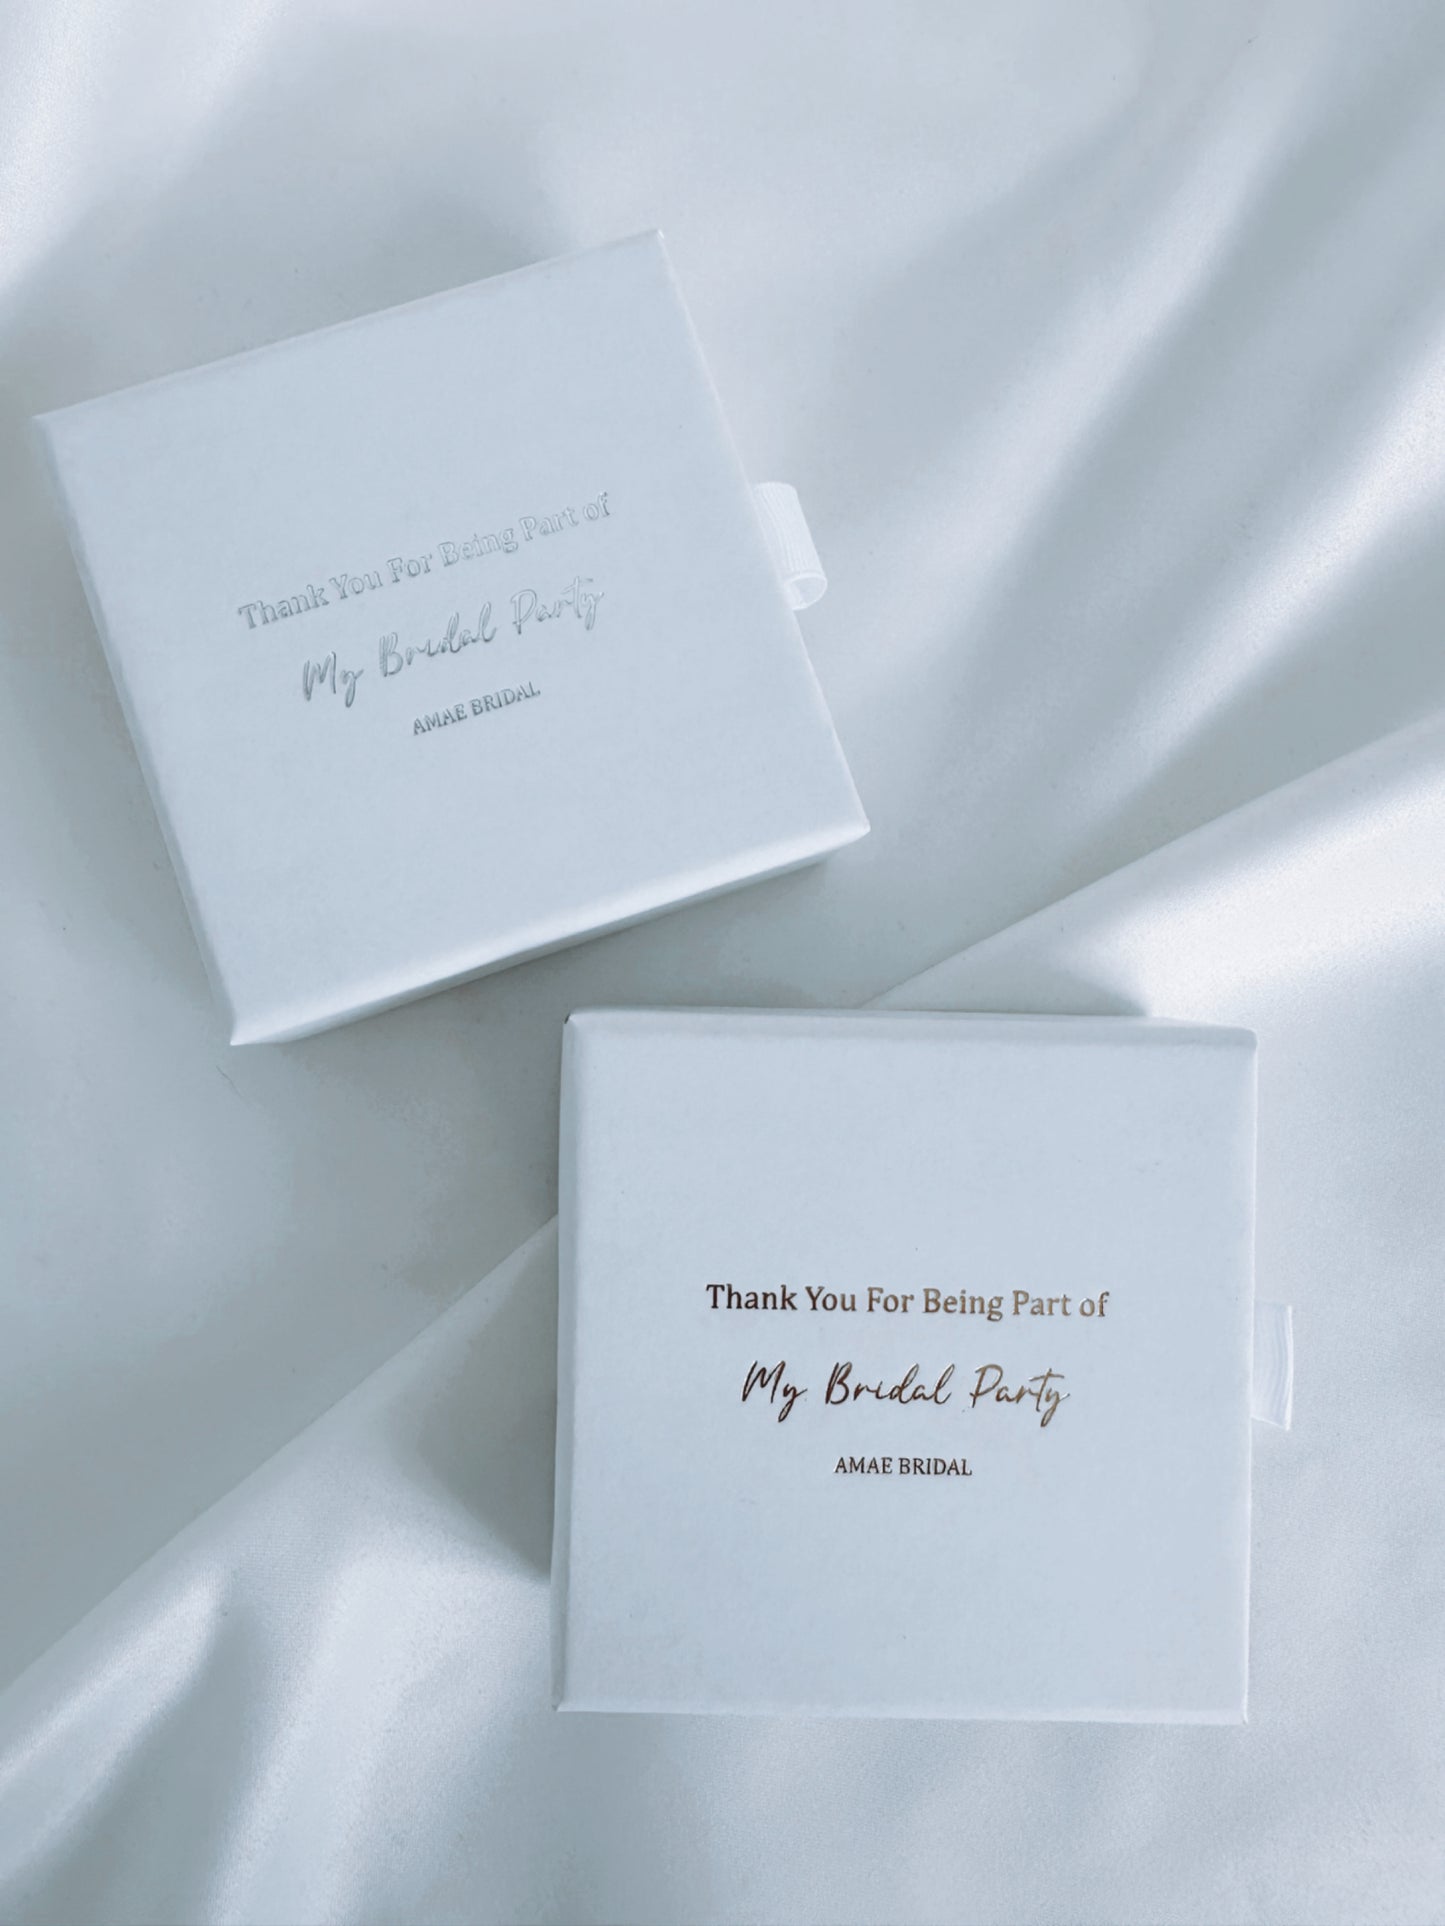 Thank You For Being Part of
My Bridal Party
AMAE BRIDAL
Thank You For Being Part of
My Bridal Party
AMAE BRIDAL